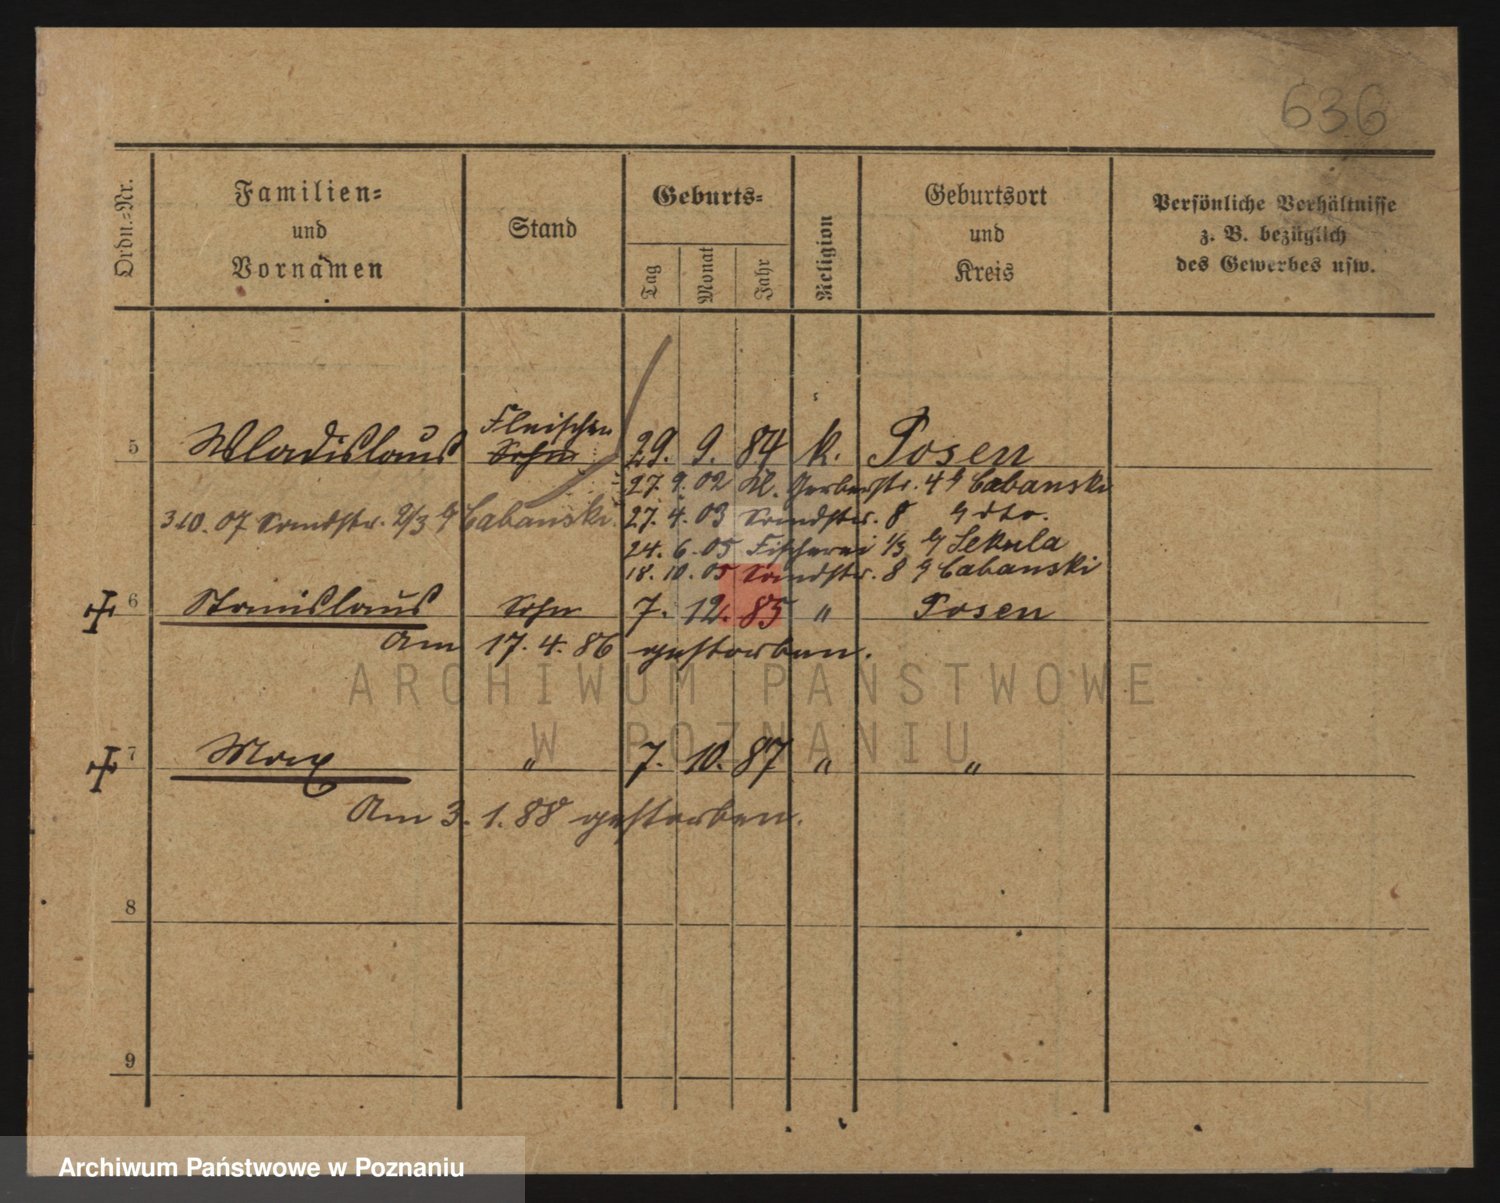 636
Ordn.=Nr.
Familien=
und
Vornamen
Stand
Geburts=
Tag
Monat
Jahr
Religion
Geburtsort
und
Kreis
Persönliche Verhältnisse
z. B. bezüglich
des Gewerbes usw.
Fleischer
5 Wladislaus Sohn 29. 9. 84 k. Posen
27. 9. 02 Kl. Gerberstr. 4 Cabanski
3.10. 07 Sandstr. 2/3 Cabanski. 27. 4. 03 Sandstr. 8 dto.
24. 6. 05 Fischerei 1/3 Sekula
18. 10. 05 Sandstr. 8 Cabanski
6 Stanislaus Sohn 7. 12. 85 " Posen
Am 17. 4. 86 gestorben.
ARCHIWUM PAŃSTWOWE
W POZNANIU
7 Max " 7. 10. 87 " "
Am 3. 1. 88 gestorben.
8
9
Archiwum Państwowe w Poznaniu